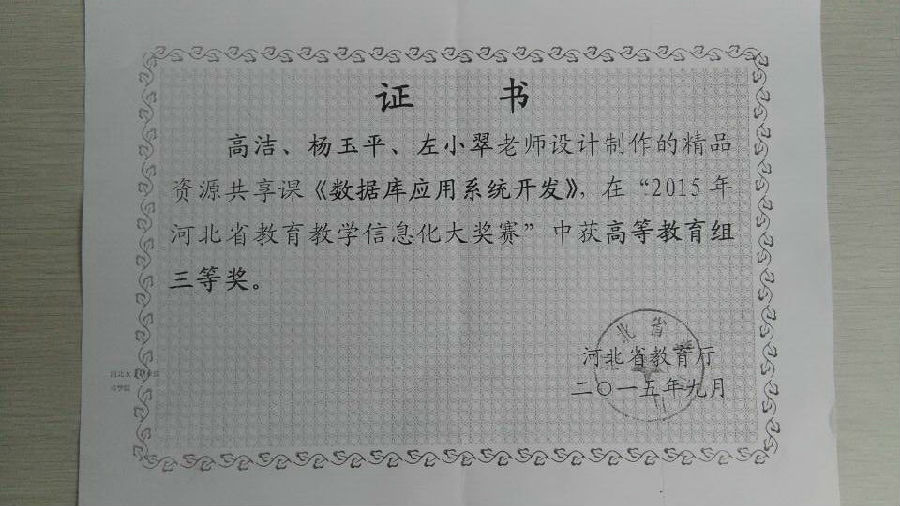 证 书
高洁、杨玉平、左小翠老师设计制作的精品
资源共享课《数据库应用系统开发》，在“2015年
河北省教育教学信息化大奖赛”中获高等教育组
三等奖。
河北省教育厅
二〇一五年九月